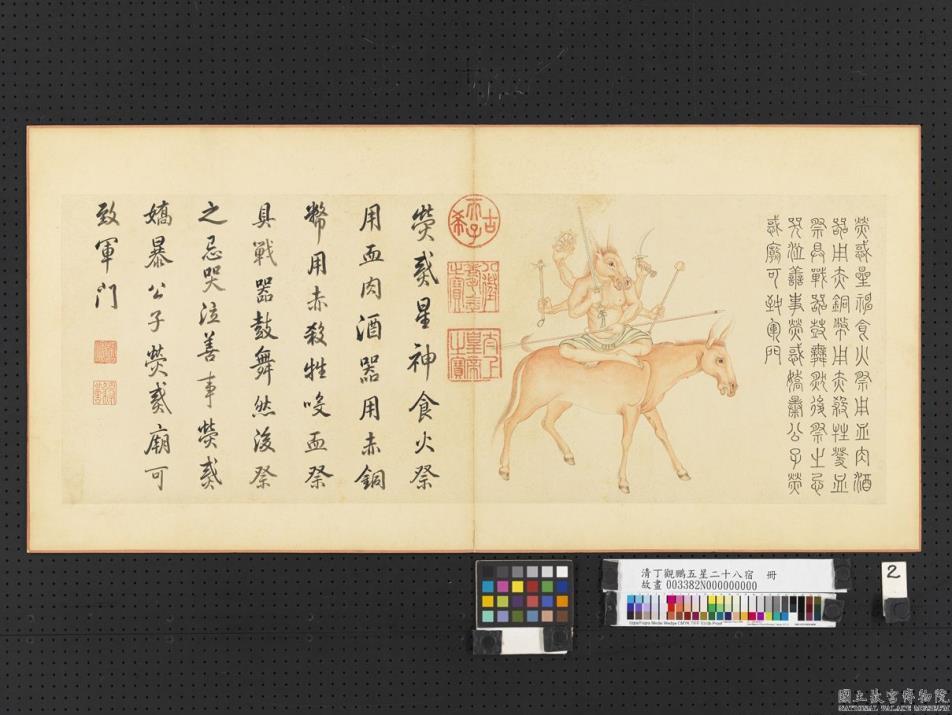 熒惑星神食火祭用血肉酒
器用赤銅幣用赤殺牲唼血
祭具戰器鼓舞然後祭之忌
哭泣善事熒惑嬌暴公子熒
惑廟可致軍門
古希天子
八徵耄念之寶
太上皇帝之寶
熒惑星神食火祭
用血肉酒器用赤銅
幣用赤殺牲唼血祭
具戰器鼓舞然後祭
之忌哭泣善事熒惑
嬌暴公子熒惑廟可
致軍門
清丁觀鵬五星二十八宿 冊
故畫 003382N000000000
2
國立故宮博物院
NATIONAL PALACE MUSEUM